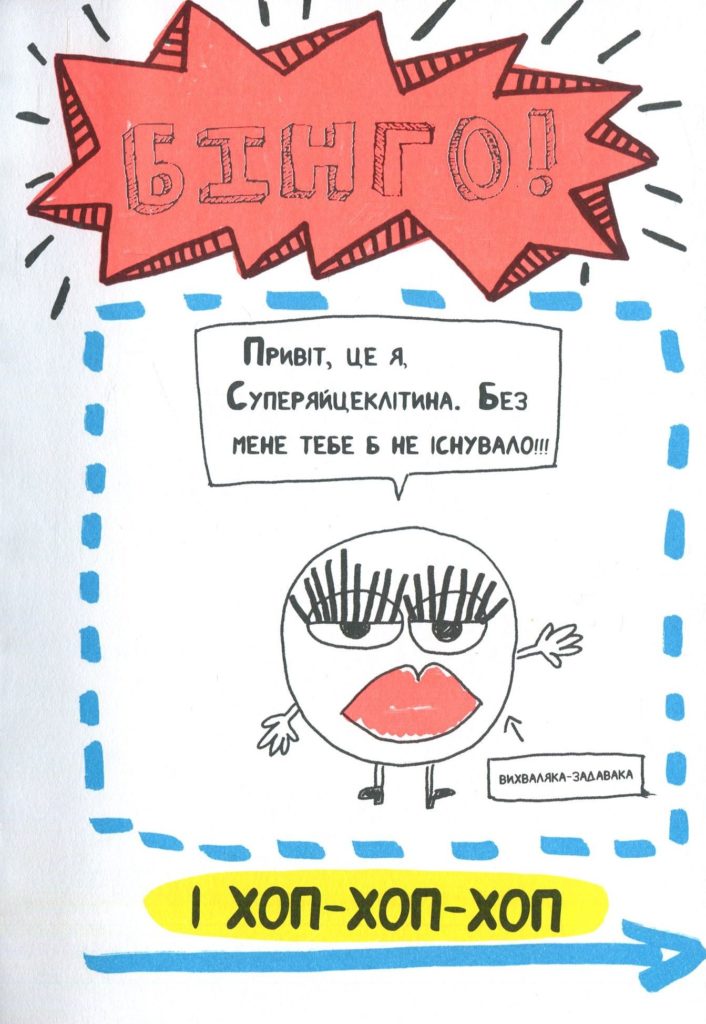 БІНГО!
Привіт, це я,
Суперяйцеклітина. Без
мене тебе б не існувало!!!
вихваляка-задавака
І ХОП-ХОП-ХОП